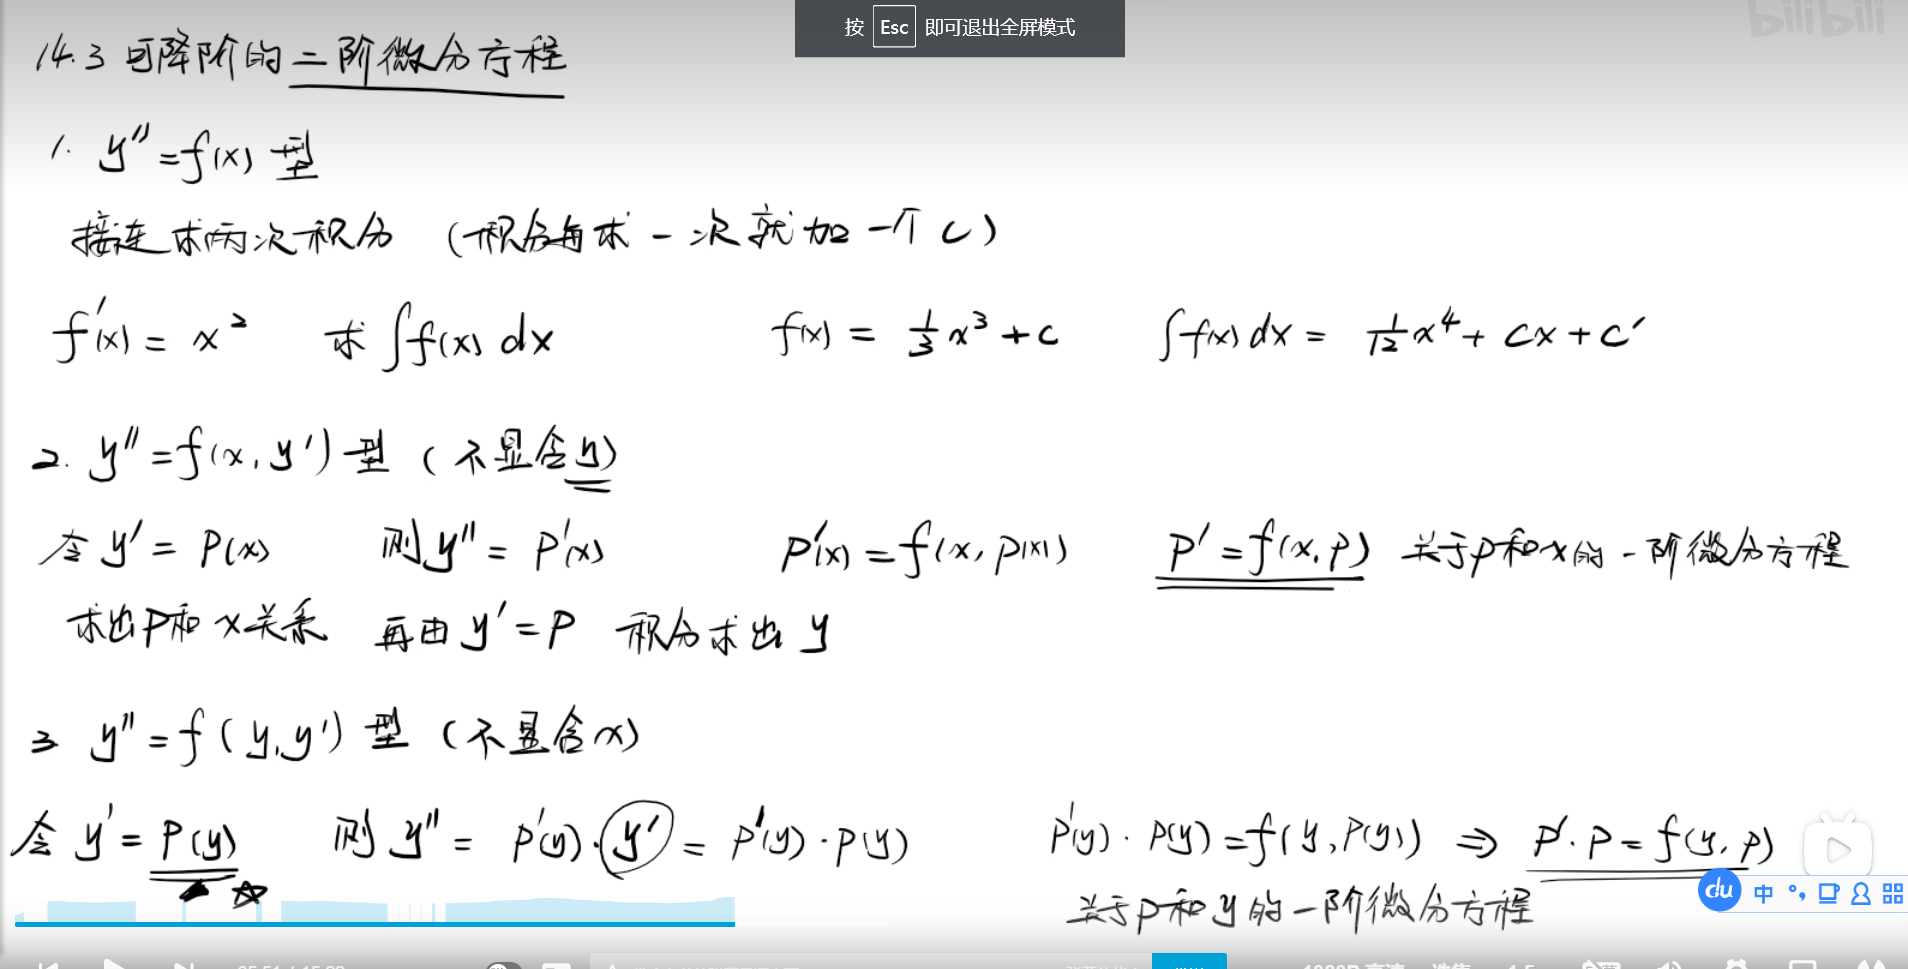 按 Esc 即可退出全屏模式
bilibili
14.3 可降阶的二阶微分方程
1. y''=f(x) 型
接连求两次积分 (积分每求一次就加一个C)
f'(x) = x² 求 ∫f(x) dx f(x) = 1/3 x³ + C ∫f(x) dx = 1/12 x⁴ + Cx + C'
2. y''=f(x, y') 型 (不显含y)
令 y' = P(x) 则 y'' = P'(x) P'(x) = f(x, P(x)) P' = f(x, P) 关于P和x的一阶微分方程
求出P和x关系 再由 y' = P 积分求出 y
3 y''=f(y, y') 型 (不显含x)
令 y' = P(y) 则 y'' = P'(y)·y' = P'(y)·P(y) P'(y)·P(y) = f(y, P(y)) ⇒ P'·P = f(y, P)
du 中
关于P和y的一阶微分方程